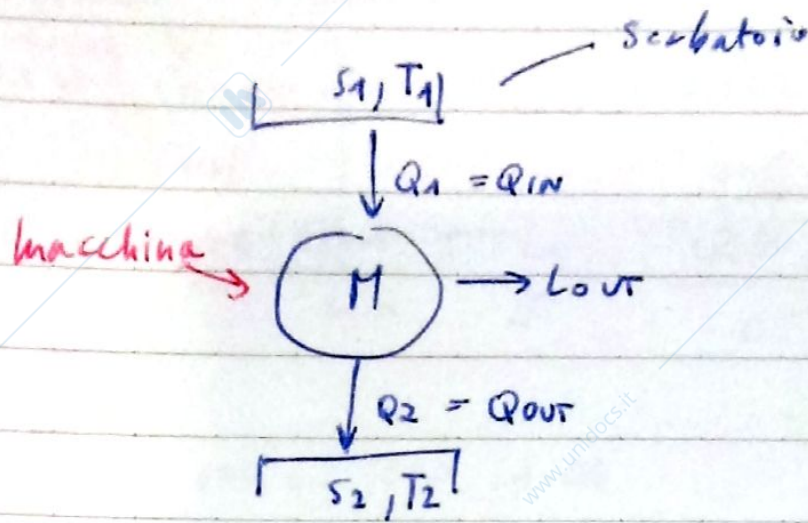 Serbatoio
S1, T1
Q1 = QIN
Macchina
M
LOUT
Q2 = QOUT
S2, T2
www.unidocs.it